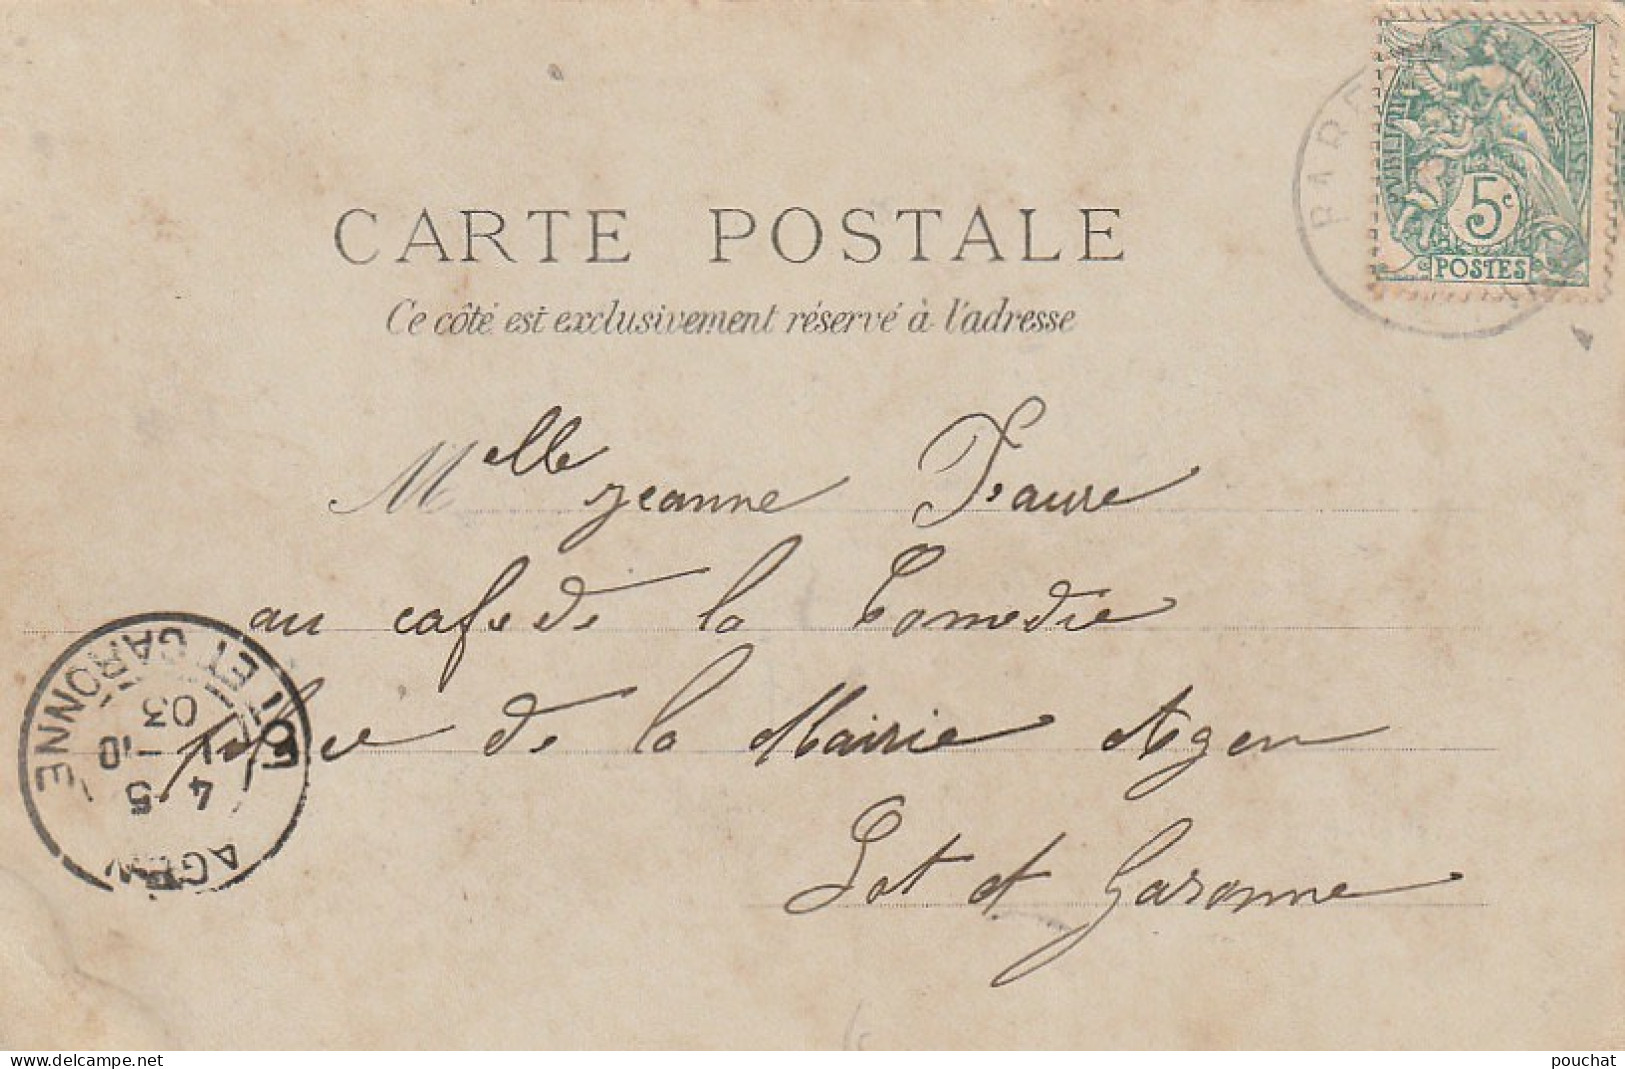 CARTE POSTALE
Ce côté est exclusivement réservé à l'adresse
RÉPUBLIQUE FRANÇAISE
5c
POSTES
Melle Jeanne Faure
au cafe de la Comedie
place de la Mairie Agen
Lot et Garonne
AGEN
LOT ET GARONNE
5-10
03
delcampe.net
pouchat